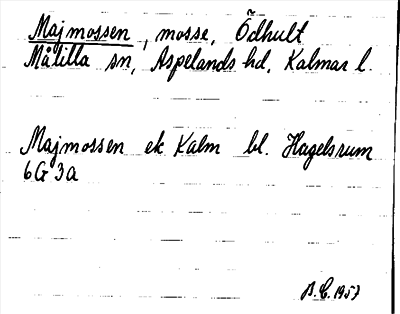 Majmossen, mosse, Ödhult
Målilla sn, Aspelands hd, Kalmar l.
Majmossen ek Kalm bl. Hagelsrum
6G3a
B.E. 1957